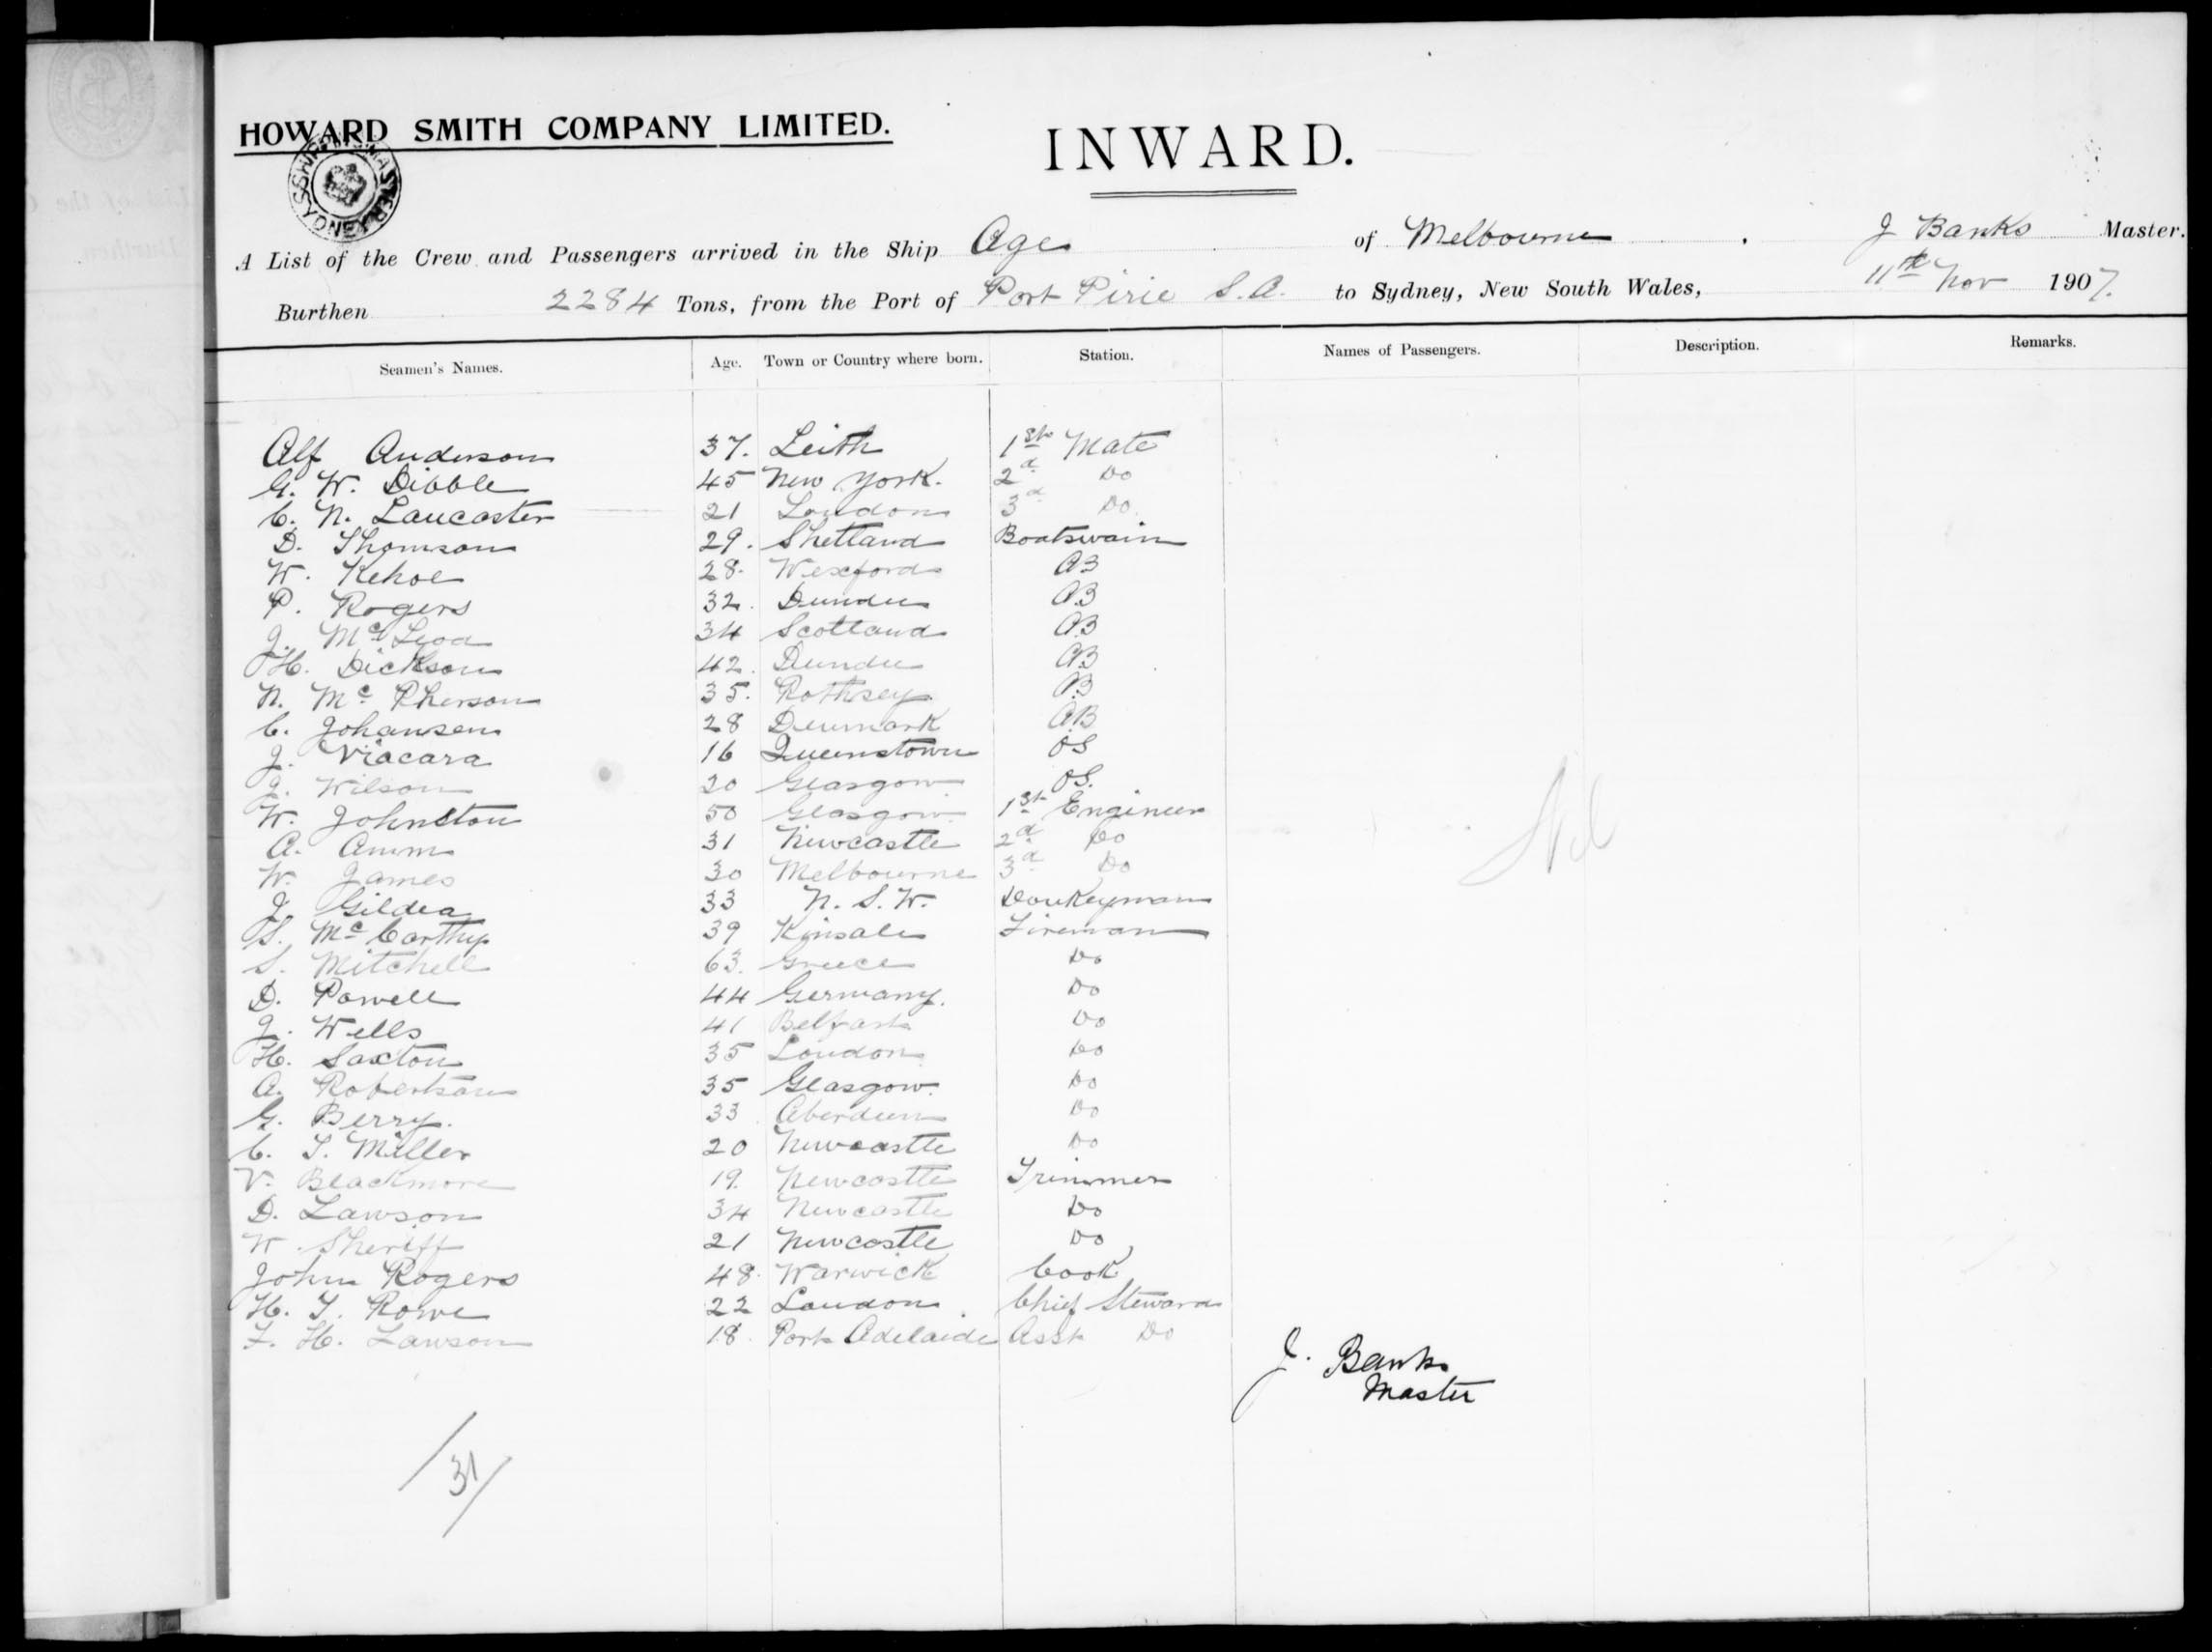 HOWARD SMITH COMPANY LIMITED.
INWARD.
SHIPPING MASTER SYDNEY
A List of the Crew and Passengers arrived in the Ship Age of Melbourne, J Banks Master.
Burthen 2284 Tons, from the Port of Port Pirie S.A. to Sydney, New South Wales, 11th Nov 1907.
Seamen's Names. Age. Town or Country where born. Station. Names of Passengers. Description. Remarks.
Alf Anderson 37. Leith 1st Mate
G. W. Dibble 45 New York. 2d Do
C. N. Lancaster 21 London 3d Do.
D. Thomson 29. Shetland Boatswain
W. Kehoe 28. Wexford AB
P. Rogers 32. Dundee AB
J. McLeod 34 Scotland AB
H. Dickson 42. Dundee AB
N. McPherson 35. Rothsey. AB
C. Johansen 28 Denmark AB
J. Viacara 16 Queenstown OS
J. Wilson 20 Glasgow. OS.
W. Johnston 50 Glasgow. 1st Engineer
A. Amm 31 Newcastle 2d Do
W. James 30 Melbourne 3d Do
J. Gildea 33 N. S. W. Donkeyman
S. McCarthy 39 Kinsale Fireman
S. Mitchell 63. Greece Do
D. Powell 44 Germany. Do
J. Wells 41 Belfast Do
H. Saxton 35 London Do
A. Robertson 35 Glasgow. Do
G. Berry. 33 Aberdeen Do
C. T. Miller 20 Newcastle Do
V. Blackmore 19. Newcastle Trimmer
D. Lawson 34 Newcastle Do
W. Sheriff 21 Newcastle Do
John Rogers 48. Warwick Cook
H. T. Rowe 22 London. Chief Steward
F. H. Lawson 18. Port Adelaide Asst Do
Nil
J. Banks
Master
/31/